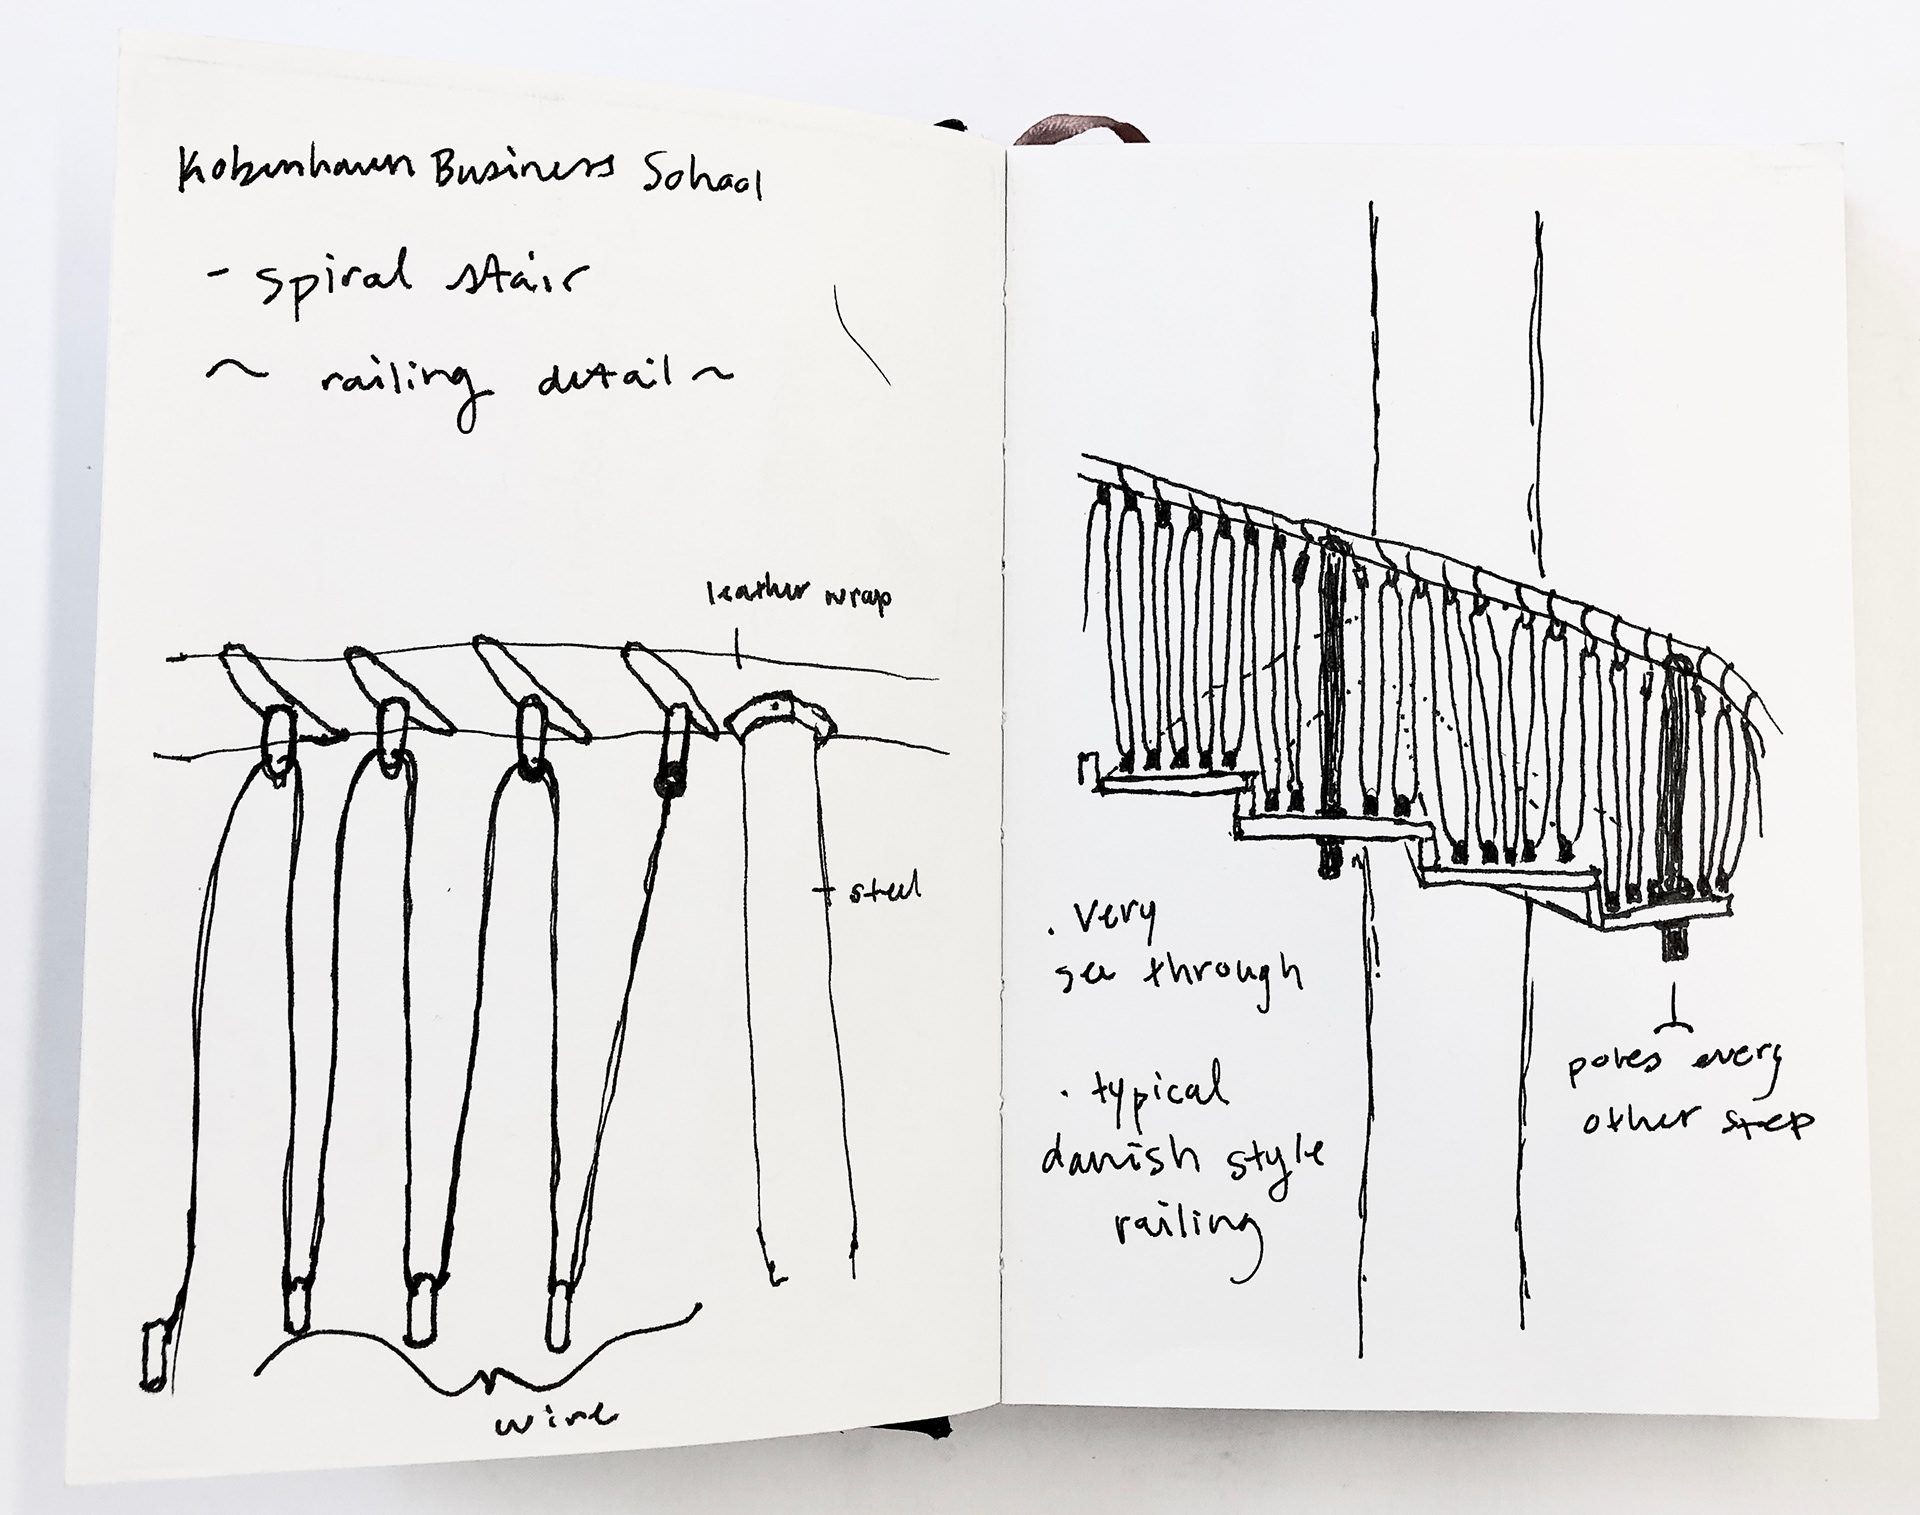 Kobenhaven Business School
- spiral stair
~ railing detail ~
leather wrap
steel
wire
. very
see through
. typical
danish style
railing
poles every
other step